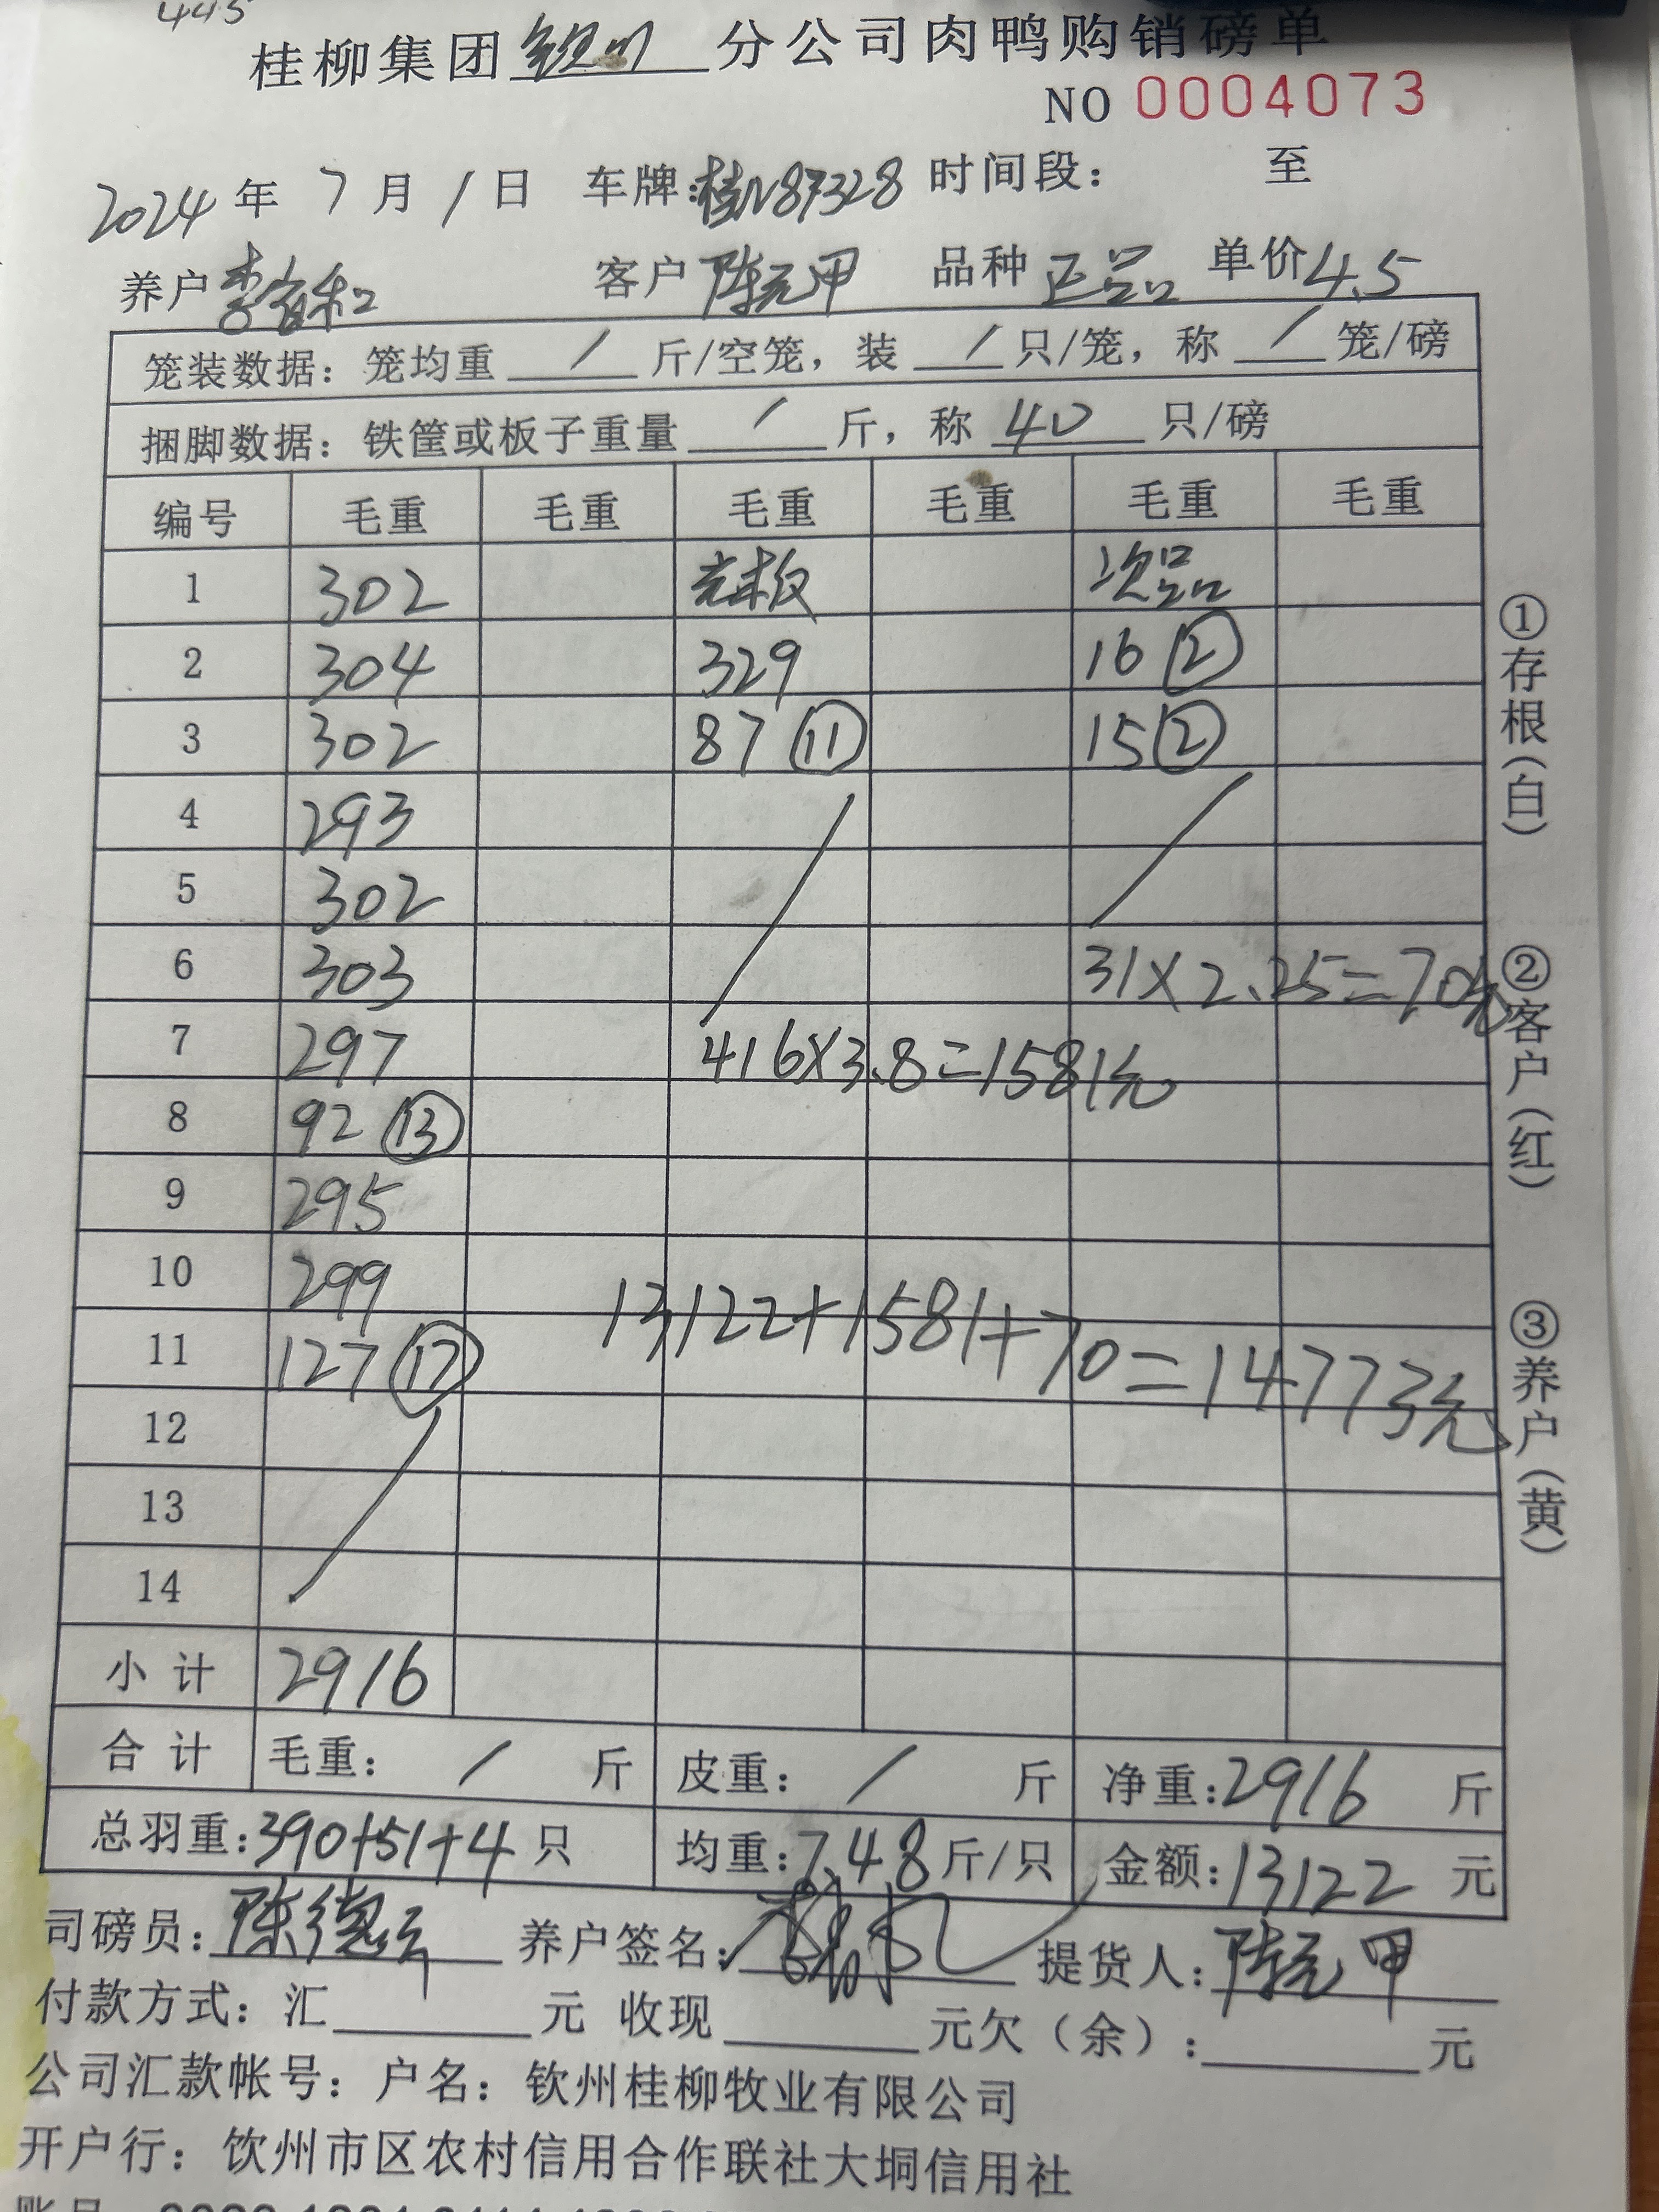 445
桂柳集团钦州分公司肉鸭购销磅单
NO 0004073
2024年7月1日 车牌:桂N87328 时间段: 至
养户 李富和 客户 陈元甲 品种 正品 单价4.5
笼装数据: 笼均重 / 斤/空笼, 装 / 只/笼, 称 / 笼/磅
捆脚数据: 铁筐或板子重量 / 斤, 称 40 只/磅
编号 毛重 毛重 毛重 毛重 毛重 毛重
1 302 光板 次品
2 304 329 16 ②
3 302 87 ⑪ 15 ②
4 293
5 302
6 303 31×2.25=70元
7 297 416×3.8=1581元
8 92 ⑬
9 295
10 299
13122+1581+70=14773元
11 127 ⑰
12
13
14
小计 2916
合计 毛重: / 斤 皮重: / 斤 净重:2916 斤
总羽重:390+51+4 只 均重:7.48斤/只 金额:13122 元
司磅员: 陈德 养户签名: 提货人: 陈元甲
付款方式: 汇 元 收现 元欠(余): 元
公司汇款帐号: 户名: 钦州桂柳牧业有限公司
开户行: 饮州市区农村信用合作联社大垌信用社
①存根(白)
②客户(红)
③养户(黄)